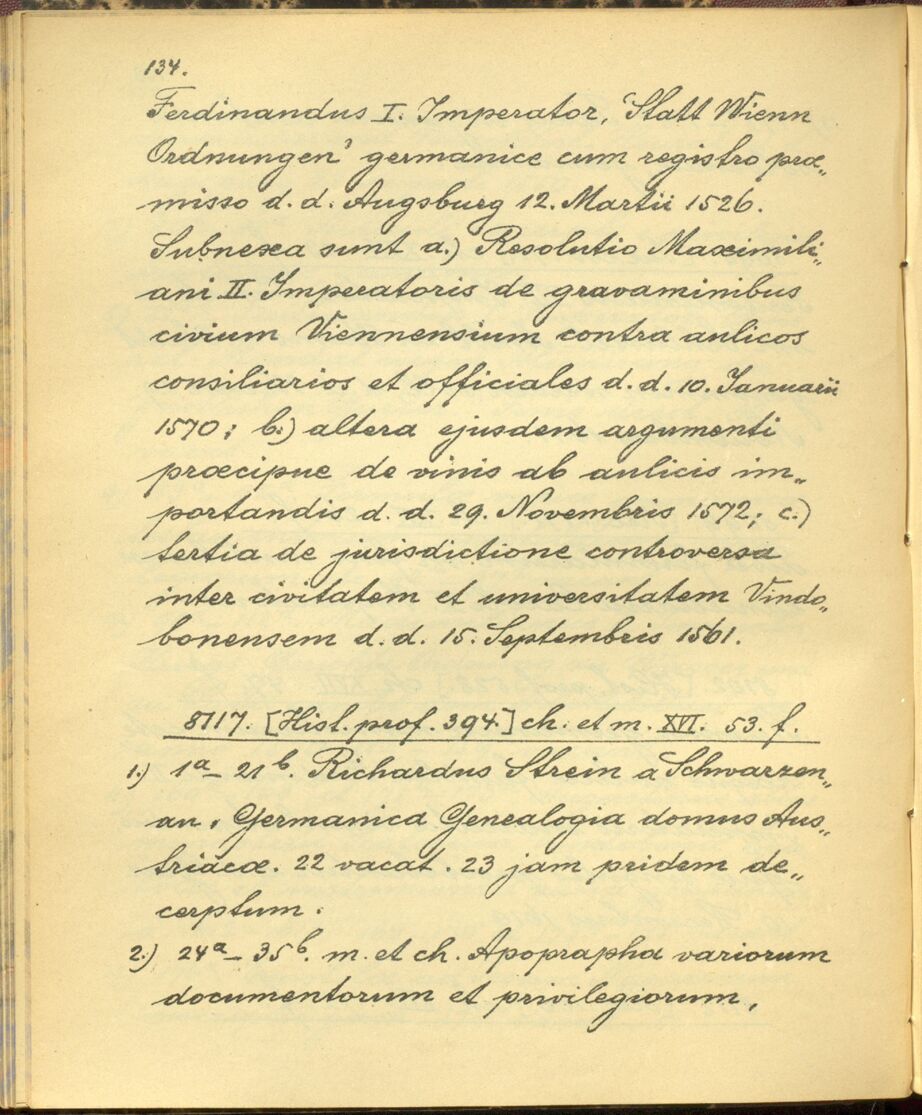 134.
Ferdinandus I. Imperator, 'Statt Wienn
Ordnungen' germanice cum registro præ„
misso d. d. Augsburg 12. Martii 1526.
Subnexa sunt a.) Resolutio Maximili„
ani II. Imperatoris de gravaminibus
civium Viennensium contra aulicos
consiliarios et officiales d. d. 10. Januarii
1570; b.) altera ejusdem argumenti
præcipue de vinis ab aulicis im„
portandis d. d. 29. Novembris 1572; c.)
tertia de jurisdictione controversa
inter civitatem et universitatem Vindo„
bonensem d. d. 15. Septembris 1561.
8117. [Hist. prof. 394.] ch. et m. XVI. 53. f.
1.) 1a_ 21b. Richardus Strein a Schwarzen„
au, Germanica Genealogia domus Aus„
triacæ. 22 vacat. 23 jam pridem de„
cerptum.
2.) 24a_ 35b. m. et ch. Apoprapha variorum
documentorum et privilegiorum,